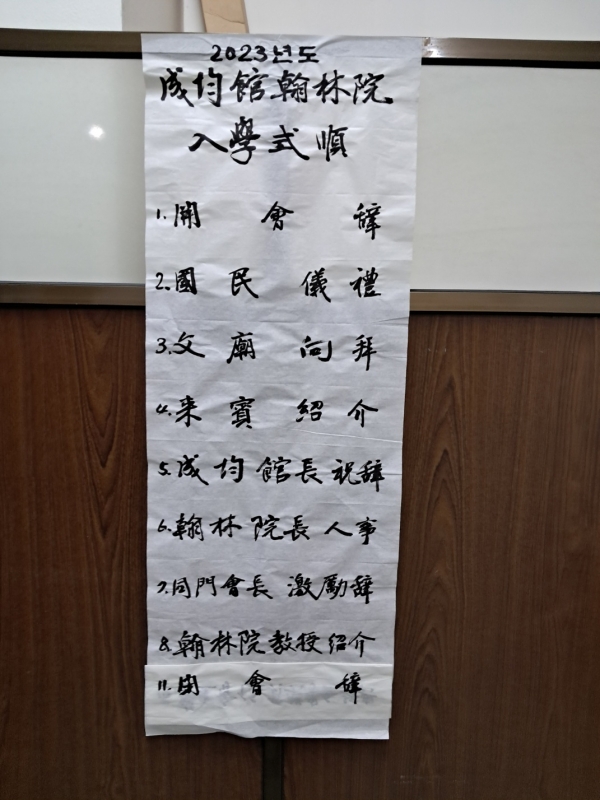 2023년도
成均館翰林院
入學式順
1. 開會辭
2. 國民儀禮
3. 文廟向拜
4. 来賓紹介
5. 成均館長祝辭
6. 翰林院長人事
7. 同門會長激勵辭
8. 翰林院教授紹介
11. 閉會辭